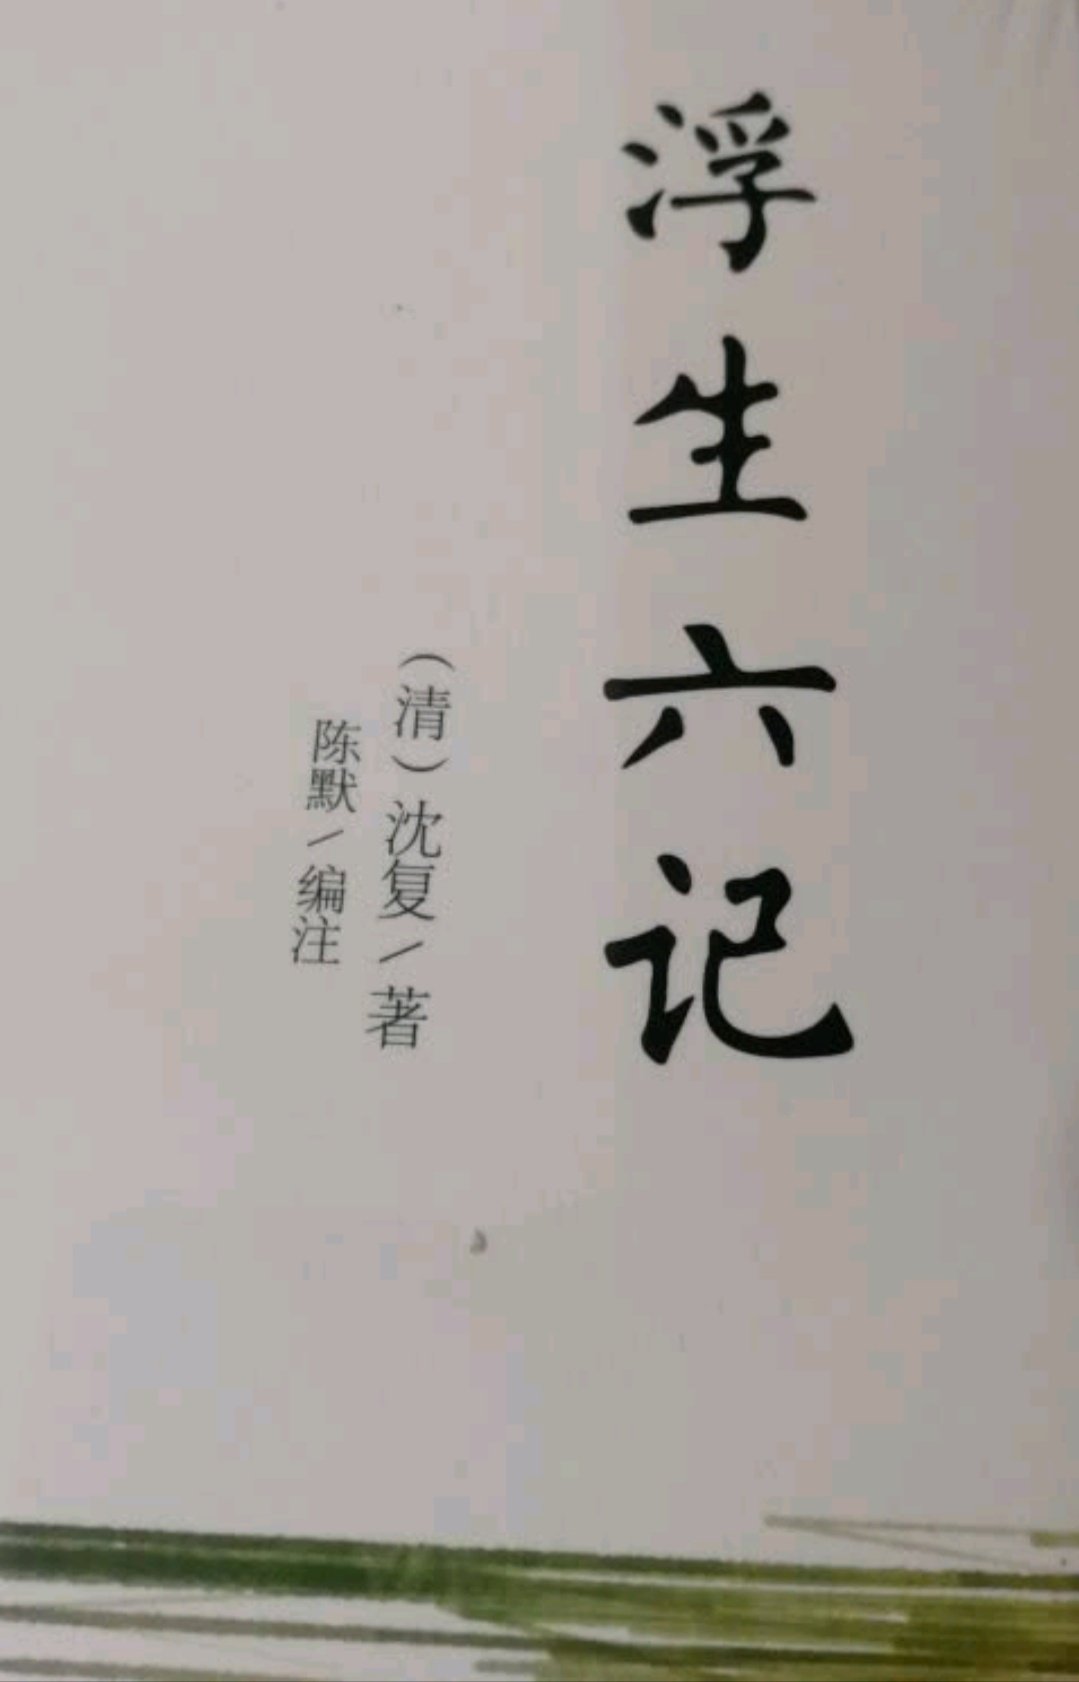 浮生六记
（清）沈复/著
陈默/编注